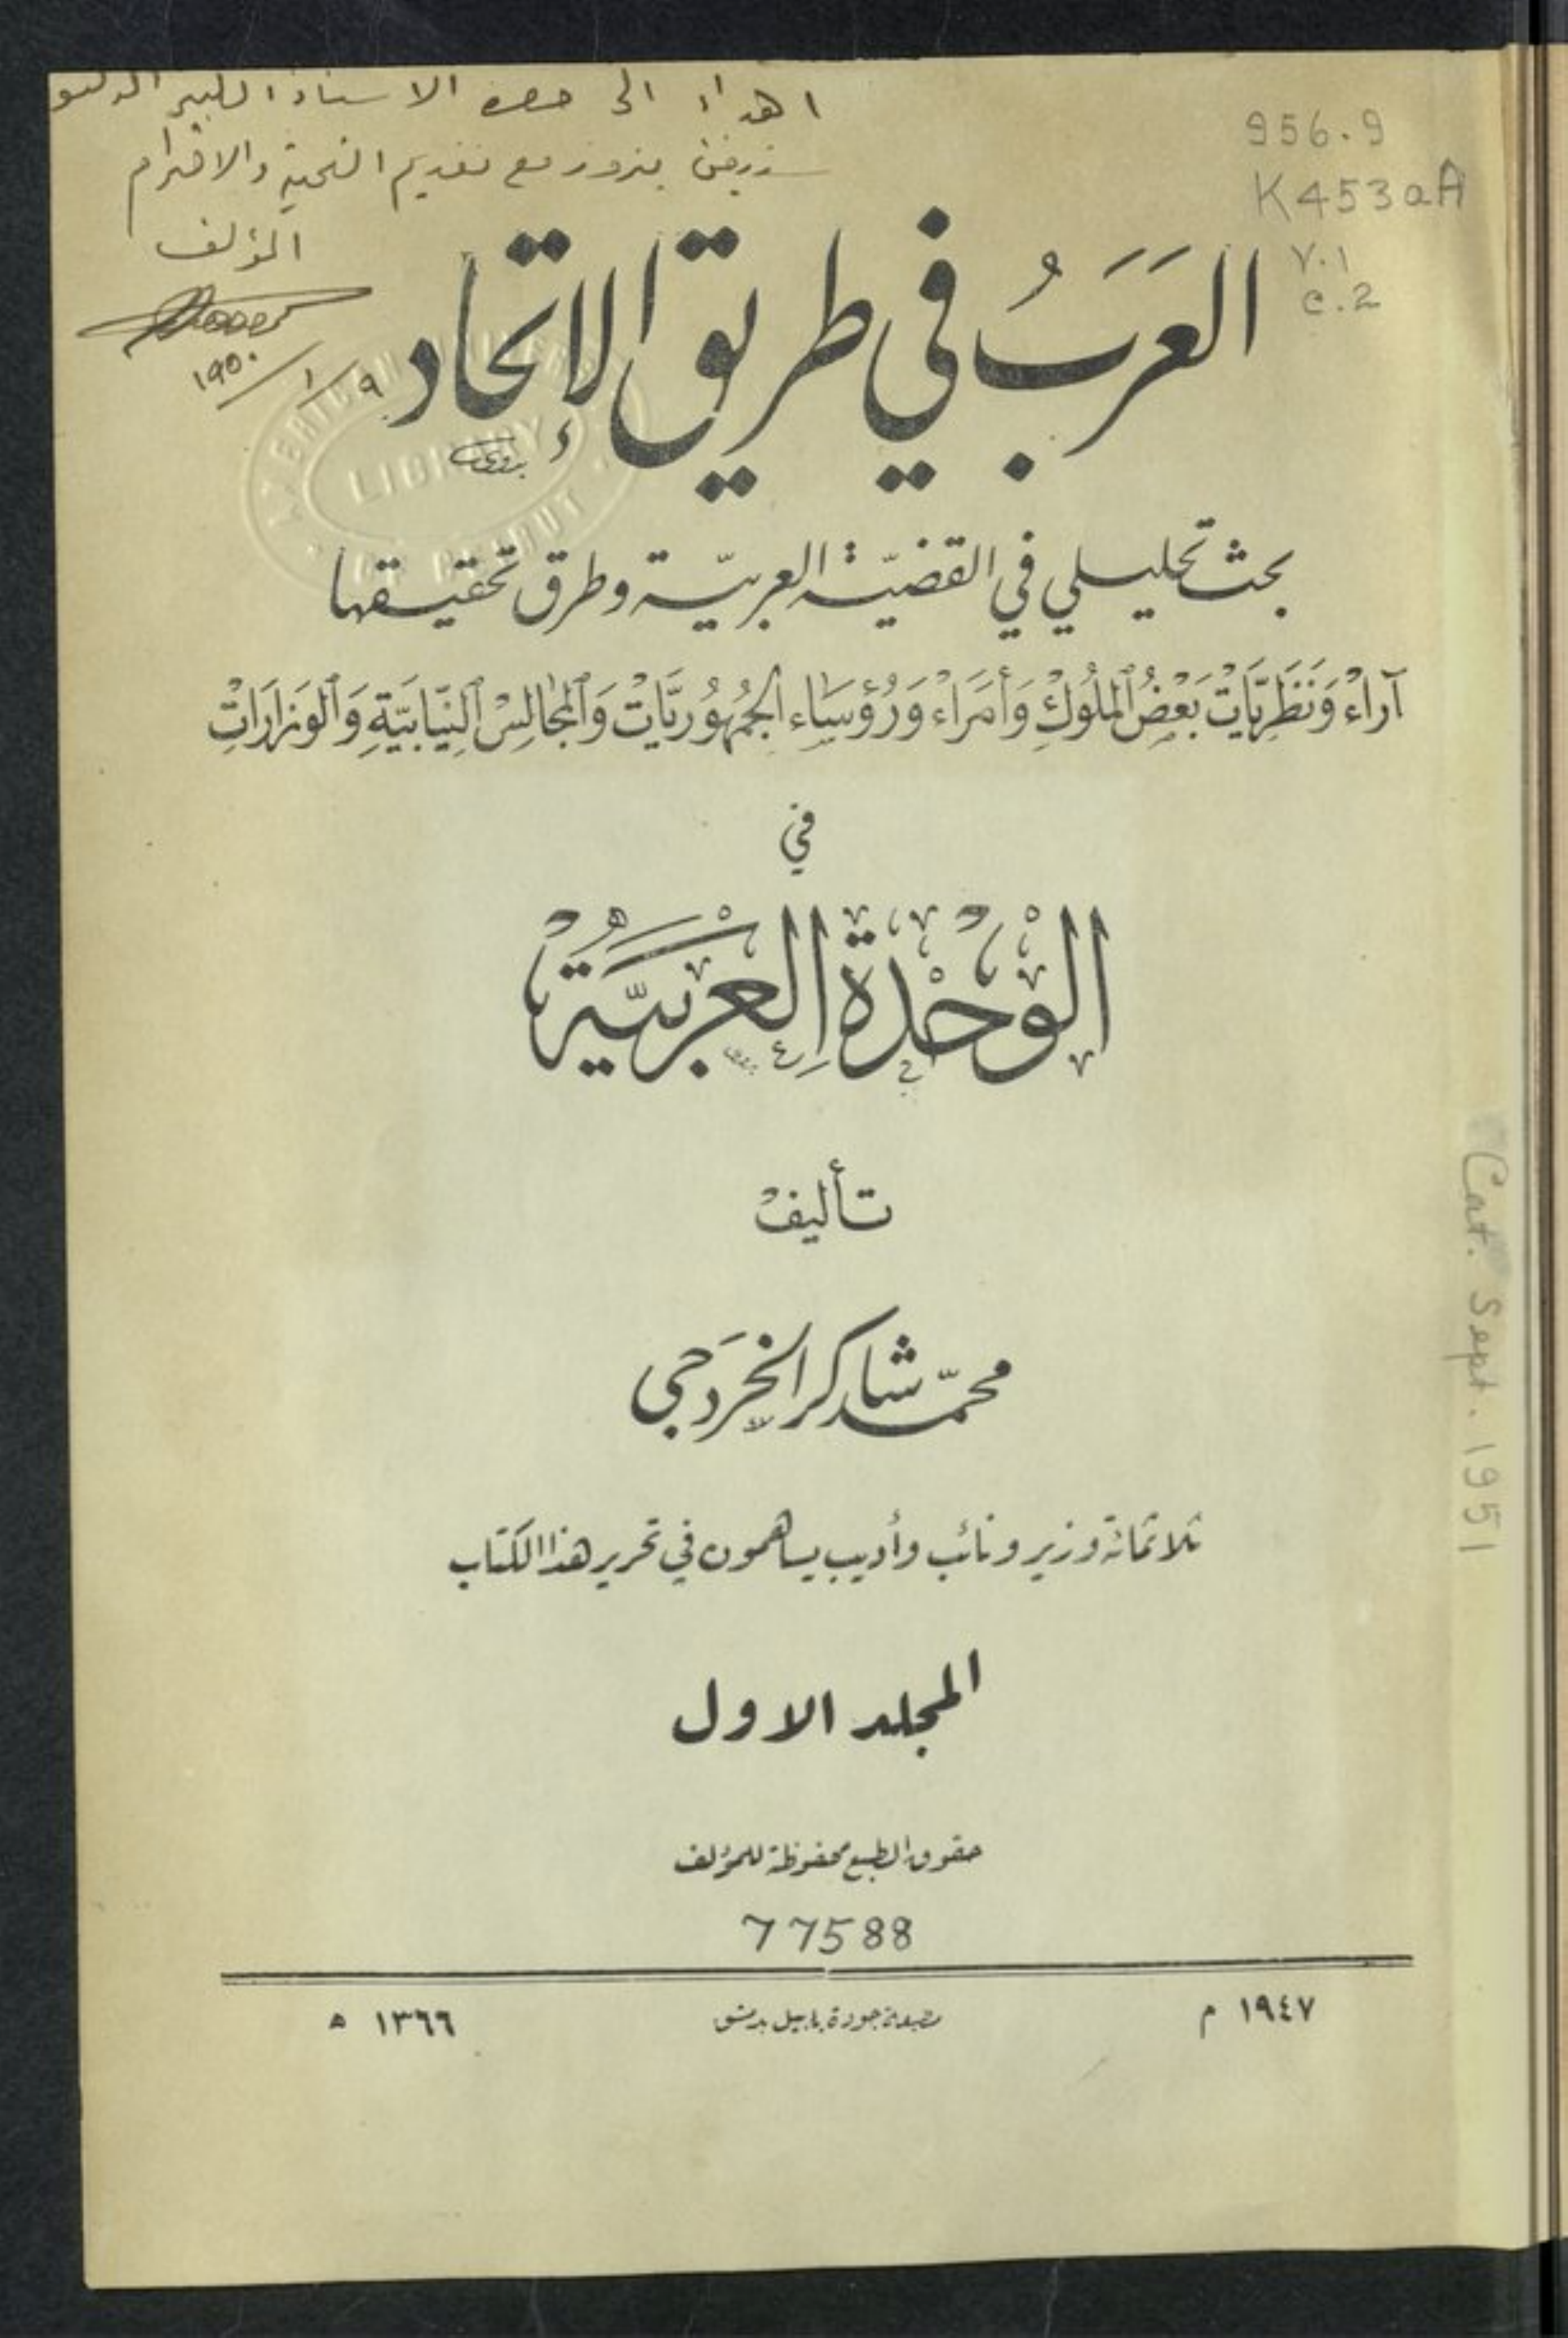 اهداء الى حضرة الاستاذ الكبير الدكتور
زريق مع تقديم التحية والاحترام
المؤلف
٩/١/١٩٥٠
956.9
K453aA
v.1
c.2
العَرَبُ في طريق الإتحاد
LIBRARY
بحث تحليلي في القضيّة العربيّة وطرق تحقيقها
آراءْ وَنَظَرِيَّاتْ بَعْضُ ٱلمُلُوكِْ وَأُمَرَاءْ وَرُؤَسَاء الجُمْهُورِيَّاتْ وَٱلمَجَالِسْ ٱلنِّيَابِيَّةِ وَٱلوِزَارَاتِْ
في
الوَحْدَة العَرَبيَّة
تأليف
محمّد شاكر الخردجي
ثلاثمائة وزير ونائب وأديب يساهمون في تحرير هذا الكتاب
المجلد الاول
حقوق الطبع محفوظة للمؤلف
77588
١٩٤٧ م
مطبعة جودة بابيل بدمشق
١٣٦٦ هـ
Cat. Sept. 1951